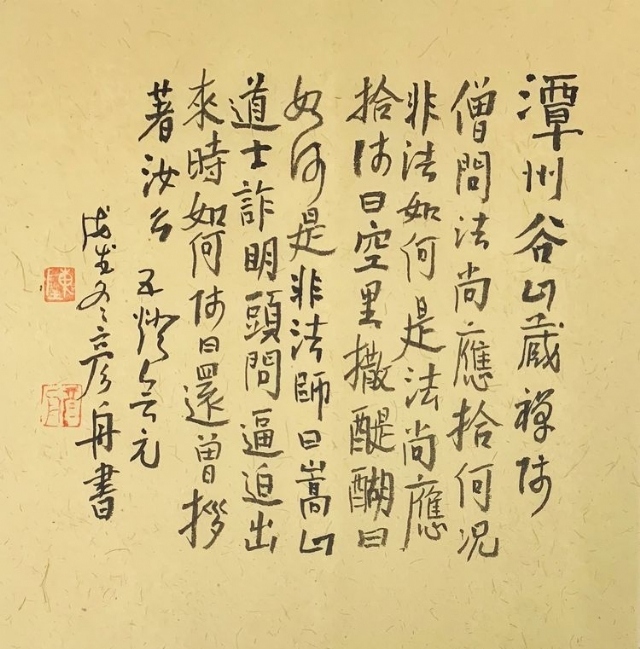 潭州谷山藏禅师
僧問法尚應拾何况
非法如何是法尚應
拾师曰空里撒醍醐曰
如何是非法師曰嵩山
道士詐明頭問逼迫出
來時如何师曰還曾拶
著汝么 五燈会元
戊戌冬彦舟書